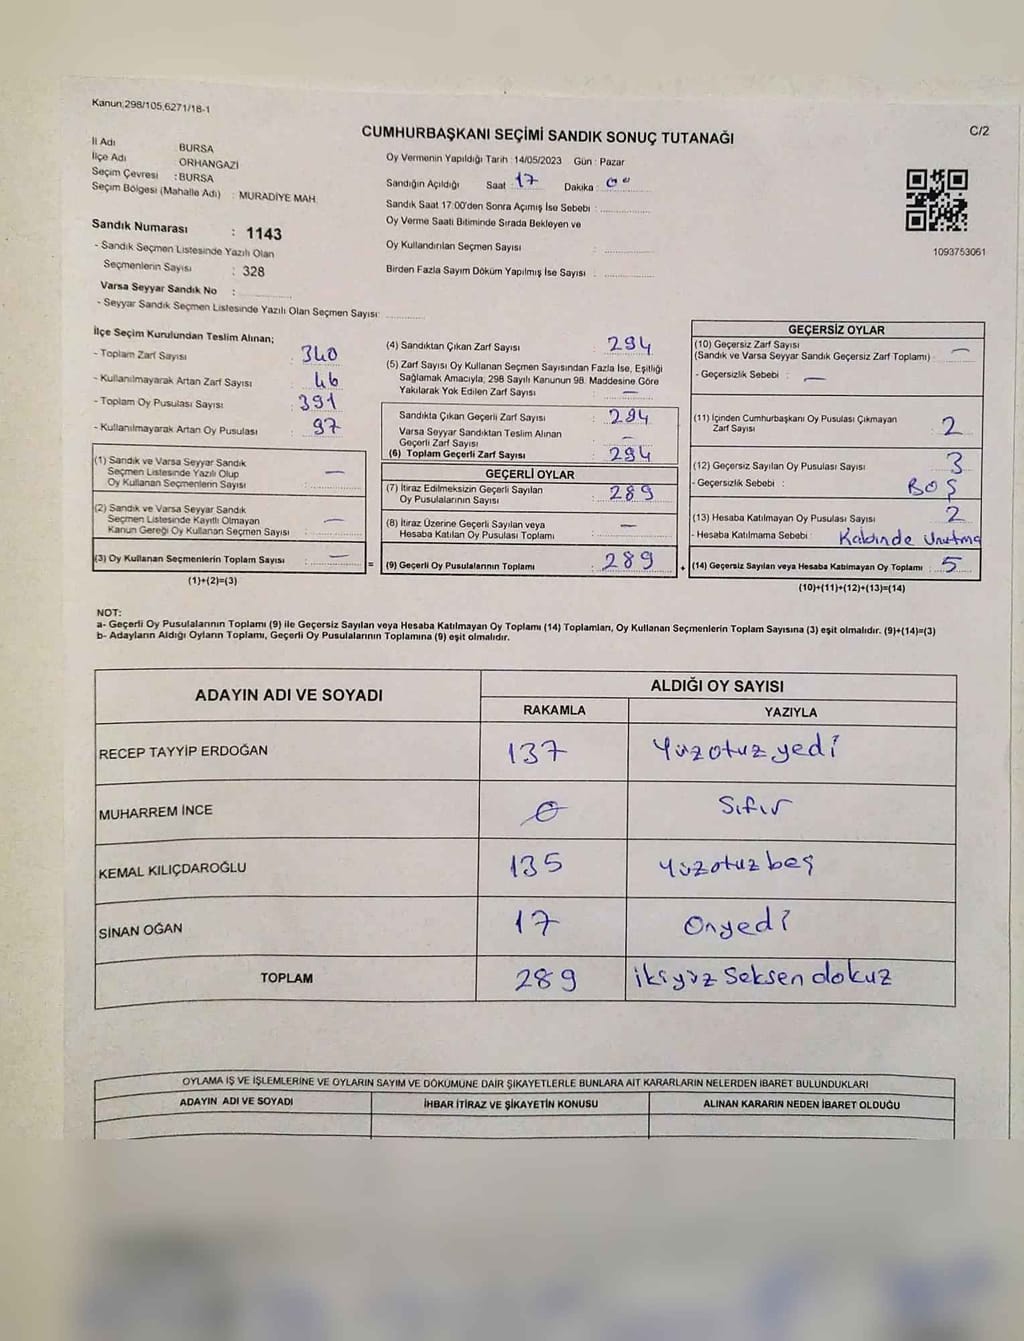 Kanun,298/105,6271/18-1
C/2
CUMHURBAŞKANI SEÇİMİ SANDIK SONUÇ TUTANAĞI
İl Adı BURSA
İlçe Adı ORHANGAZİ
Seçim Çevresi : BURSA
Seçim Bölgesi (Mahalle Adı) : MURADİYE MAH.
Oy Vermenin Yapıldığı Tarih : 14/05/2023 Gün : Pazar
Sandığın Açıldığı Saat : 17 Dakika : 00
Sandık Saat 17:00'den Sonra Açımış İse Sebebi :
Oy Verme Saati Bitiminde Sırada Bekleyen ve
Oy Kullandırılan Seçmen Sayısı :
Birden Fazla Sayım Döküm Yapılmış İse Sayısı :
1093753061
Sandık Numarası : 1143
- Sandık Seçmen Listesinde Yazılı Olan
Seçmenlerin Sayısı : 328
Varsa Seyyar Sandık No :
- Seyyar Sandık Seçmen Listesinde Yazılı Olan Seçmen Sayısı:
İlçe Seçim Kurulundan Teslim Alınan;
- Toplam Zarf Sayısı : 340
- Kullanılmayarak Artan Zarf Sayısı : 46
- Toplam Oy Pusulası Sayısı : 391
- Kullanılmayarak Artan Oy Pusulası : 97
(1) Sandık ve Varsa Seyyar Sandık
Seçmen Listesinde Yazılı Olup
Oy Kullanan Seçmenlerin Sayısı : —
(2) Sandık ve Varsa Seyyar Sandık
Seçmen Listesinde Kayıtlı Olmayan
Kanun Gereği Oy Kullanan Seçmen Sayısı : —
(3) Oy Kullanan Seçmenlerin Toplam Sayısı : —
(1)+(2)=(3)
(4) Sandıktan Çıkan Zarf Sayısı : 294
(5) Zarf Sayısı Oy Kullanan Seçmen Sayısından Fazla İse, Eşitliği
Sağlamak Amacıyla, 298 Sayılı Kanunun 98. Maddesine Göre
Yakılarak Yok Edilen Zarf Sayısı : —
Sandıkta Çıkan Geçerli Zarf Sayısı : 294
Varsa Seyyar Sandıktan Teslim Alınan
Geçerli Zarf Sayısı : —
(6) Toplam Geçerli Zarf Sayısı : 294
GEÇERLİ OYLAR
(7) İtiraz Edilmeksizin Geçerli Sayılan
Oy Pusulalarının Sayısı : 289
(8) İtiraz Üzerine Geçerli Sayılan veya
Hesaba Katılan Oy Pusulası Toplamı : —
= (9) Geçerli Oy Pusulalarının Toplamı : 289
GEÇERSİZ OYLAR
(10) Geçersiz Zarf Sayısı
(Sandık ve Varsa Seyyar Sandık Geçersiz Zarf Toplamı) : —
- Geçersizlik Sebebi : —
(11) İçinden Cumhurbaşkanı Oy Pusulası Çıkmayan
Zarf Sayısı : 2
(12) Geçersiz Sayılan Oy Pusulası Sayısı : 3
- Geçersizlik Sebebi : BOŞ
(13) Hesaba Katılmayan Oy Pusulası Sayısı : 2
- Hesaba Katılmama Sebebi : Kabinde Unutma
+ (14) Geçersiz Sayılan veya Hesaba Katılmayan Oy Toplamı : 5
(10)+(11)+(12)+(13)=(14)
NOT:
a- Geçerli Oy Pusulalarının Toplamı (9) ile Geçersiz Sayılan veya Hesaba Katılmayan Oy Toplamı (14) Toplamları, Oy Kullanan Seçmenlerin Toplam Sayısına (3) eşit olmalıdır. (9)+(14)=(3)
b- Adayların Aldığı Oyların Toplamı, Geçerli Oy Pusulalarının Toplamına (9) eşit olmalıdır.
ADAYIN ADI VE SOYADI
ALDIĞI OY SAYISI
RAKAMLA YAZIYLA
RECEP TAYYİP ERDOĞAN 137 Yüzotuzyedi
MUHARREM İNCE 0 Sıfır
KEMAL KILIÇDAROĞLU 135 Yüzotuzbeş
SİNAN OĞAN 17 Onyedi
TOPLAM 289 ikiyüz Seksen dokuz
OYLAMA İŞ VE İŞLEMLERİNE VE OYLARIN SAYIM VE DÖKÜMÜNE DAİR ŞİKAYETLERLE BUNLARA AİT KARARLARIN NELERDEN İBARET BULUNDUKLARI
ADAYIN ADI VE SOYADI İHBAR İTİRAZ VE ŞİKAYETİN KONUSU ALINAN KARARIN NEDEN İBARET OLDUĞU